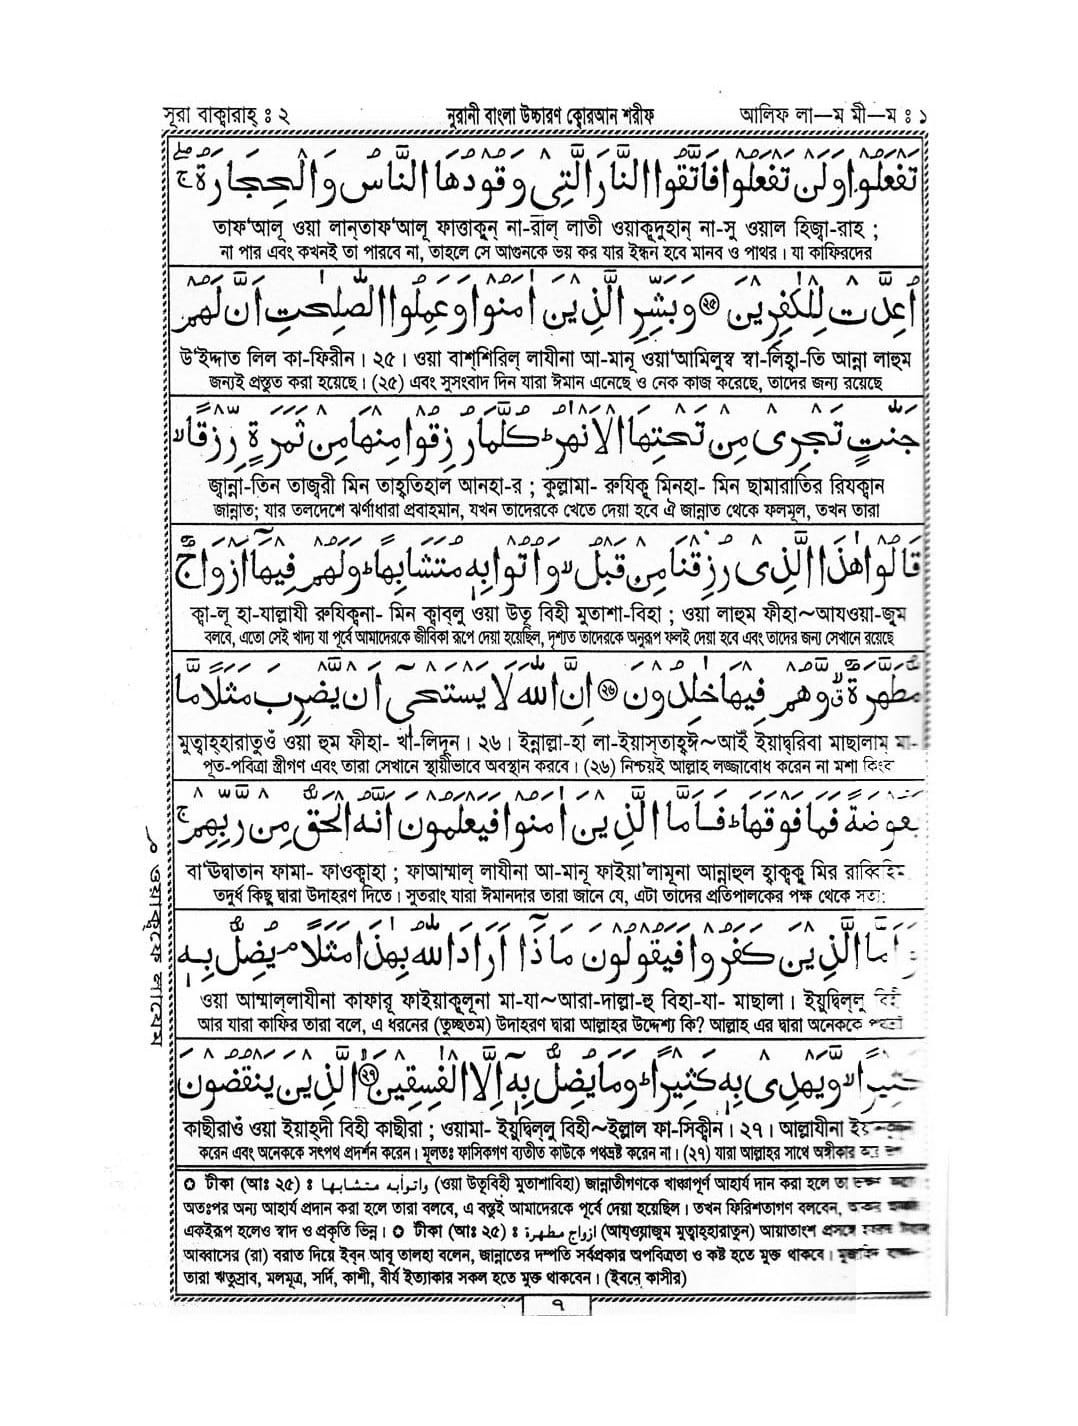 সূরা বাক্বারাহ্ ঃ ২ নূরানী বাংলা উচ্চারণ ক্বোরআন শরীফ আলিফ লা—ম মী—ম ঃ ১
تَفْعَلُوْا وَلَنْ تَفْعَلُوْا فَاتَّقُوا النَّارَ الَّتِىْ وَقُوْدُهَا النَّاسُ وَالْحِجَارَةُ ۚۖ
তাফ'আলূ ওয়া লান্‌তাফ'আলূ ফাত্তাকুন্ না-রাল্ লাতী ওয়াক্বূদুহান্ না-সু ওয়াল হিজ্বা-রাহ ;
না পার এবং কখনই তা পারবে না, তাহলে সে আগুনকে ভয় কর যার ইন্ধন হবে মানব ও পাথর। যা কাফিরদের
اُعِدَّتْ لِلْكٰفِرِيْنَ ﴿۲۵﴾ وَبَشِّرِ الَّذِيْنَ اٰمَنُوْا وَعَمِلُوا الصّٰلِحٰتِ اَنَّ لَهُمْ
উ'ইদ্দাত লিল কা-ফিরীন। ২৫। ওয়া বাশ্‌শিরিল্ লাযীনা আ-মানূ ওয়া'আমিলুস্ব স্বা-লিহ্বা-তি আন্না লাহুম
জন্যই প্রস্তুত করা হয়েছে। (২৫) এবং সুসংবাদ দিন যারা ঈমান এনেছে ও নেক কাজ করেছে, তাদের জন্য রয়েছে
جَنّٰتٍ تَجْرِىْ مِنْ تَحْتِهَا الْاَنْهٰرُ ؕ كُلَّمَا رُزِقُوْا مِنْهَا مِنْ ثَمَرَةٍ رِّزْقًا ۙ
জ্বান্না-তিন তাজ্বরী মিন তাহ্বতিহাল আনহা-র ; কুল্লামা- রুযিকূ মিনহা- মিন ছামারাতির রিযক্বান
জান্নাত; যার তলদেশে ঝর্ণাধারা প্রবাহমান, যখন তাদেরকে খেতে দেয়া হবে ঐ জান্নাত থেকে ফলমূল, তখন তারা
قَالُوْا هٰذَا الَّذِىْ رُزِقْنَا مِنْ قَبْلُ ۙ وَاُتُوْا بِهٖ مُتَشَابِهًا ؕ وَلَهُمْ فِيْهَآ اَزْوَاجٌ
ক্বা-লূ হা-যাল্লাযী রুযিক্বনা- মিন ক্বাবলু ওয়া উতূ বিহী মুতাশা-বিহা ; ওয়া লাহুম ফীহা~আযওয়া-জুম
বলবে, এতো সেই খাদ্য যা পূর্বে আমাদেরকে জীবিকা রূপে দেয়া হয়েছিল, দৃশ্যত তাদেরকে অনুরূপ ফলই দেয়া হবে এবং তাদের জন্য সেখানে রয়েছে
مُّطَهَّرَةٌ ۙ وَّهُمْ فِيْهَا خٰلِدُوْنَ ﴿۲۶﴾ اِنَّ اللّٰهَ لَا يَسْتَحْىٖٓ اَنْ يَّضْرِبَ مَثَلًا مَّا
মুত্বাহ্‌হারাতুওঁ ওয়া হুম ফীহা- খা-লিদূন। ২৬। ইন্নাল্লা-হা লা-ইয়াস্‌তাহ্বঈ~আইঁ ইয়াদ্বরিবা মাছালাম্ মা-
পূত-পবিত্রা স্ত্রীগণ এবং তারা সেখানে স্থায়ীভাবে অবস্থান করবে। (২৬) নিশ্চয়ই আল্লাহ লজ্জাবোধ করেন না মশা কিংবা
بَعُوْضَةً فَمَا فَوْقَهَا ؕ فَاَمَّا الَّذِيْنَ اٰمَنُوْا فَيَعْلَمُوْنَ اَنَّهُ الْحَقُّ مِنْ رَّبِّهِمْ ۚ
বা'ঊদ্বাতান ফামা- ফাওক্বাহা ; ফাআম্মাল্ লাযীনা আ-মানূ ফাইয়া'লামূনা আন্নাহুল হ্বাক্বকু মির রাব্বিহিম
তদূর্ধ কিছু দ্বারা উদাহরণ দিতে। সুতরাং যারা ঈমানদার তারা জানে যে, এটা তাদের প্রতিপালকের পক্ষ থেকে সত্য;
وَاَمَّا الَّذِيْنَ كَفَرُوْا فَيَقُوْلُوْنَ مَاذَآ اَرَادَ اللّٰهُ بِهٰذَا مَثَلًا ۘ يُضِلُّ بِهٖ
ওয়া আম্মাল্‌লাযীনা কাফারূ ফাইয়াক্বূলূনা মা-যা~আরা-দাল্লা-হু বিহা-যা- মাছালা। ইয়ুদ্বিল্‌লু বিহী
আর যারা কাফির তারা বলে, এ ধরনের (তুচ্ছতম) উদাহরণ দ্বারা আল্লাহর উদ্দেশ্য কি? আল্লাহ এর দ্বারা অনেককে পথভ্রষ্ট
كَثِيْرًا ۙ وَّيَهْدِىْ بِهٖ كَثِيْرًا ؕ وَمَا يُضِلُّ بِهٖٓ اِلَّا الْفٰسِقِيْنَ ﴿۲۷﴾ الَّذِيْنَ يَنْقُضُوْنَ
কাছীরাওঁ ওয়া ইয়াহ্‌দী বিহী কাছীরা ; ওয়ামা- ইয়ুদ্বিল্‌লু বিহী~ইল্লাল ফা-সিক্বীন। ২৭। আল্লাযীনা
করেন এবং অনেককে সৎপথ প্রদর্শন করেন। মূলতঃ ফাসিকগণ ব্যতীত কাউকে পথভ্রষ্ট করেন না। (২৭) যারা আল্লাহর সাথে অঙ্গীকার
✪ টীকা (আঃ ২৫) ঃ واتوابه متشابها (ওয়া উতূবিহী মুতাশাবিহা) জান্নাতীগণকে খাঞ্চাপূর্ণ আহার্য দান করা হলে তা
অতঃপর অন্য আহার্য প্রদান করা হলে তারা বলবে, এ বস্তুই আমাদেরকে পূর্বে দেয়া হয়েছিল। তখন ফিরিশতাগণ বলবেন,
একইরূপ হলেও স্বাদ ও প্রকৃতি ভিন্ন। ✪ টীকা (আঃ ২৫) ঃ ازواج مطهرة (আয্ওয়াজুম মুত্বাহ্‌হারাতুন) আয়াতাংশ প্রসঙ্গে
আব্বাসের (রা) বরাত দিয়ে ইব্‌ন আবূ তালহা বলেন, জান্নাতের দম্পতি সর্বপ্রকার অপবিত্রতা ও কষ্ট হতে মুক্ত থাকবে। মুজাহিদ
তারা ঋতুস্রাব, মলমূত্র, সর্দি, কাশী, বীর্য ইত্যাকার সকল হতে মুক্ত থাকবেন। (ইবনে কাসীর)
৭
ওয়াক্বফে লাযেম